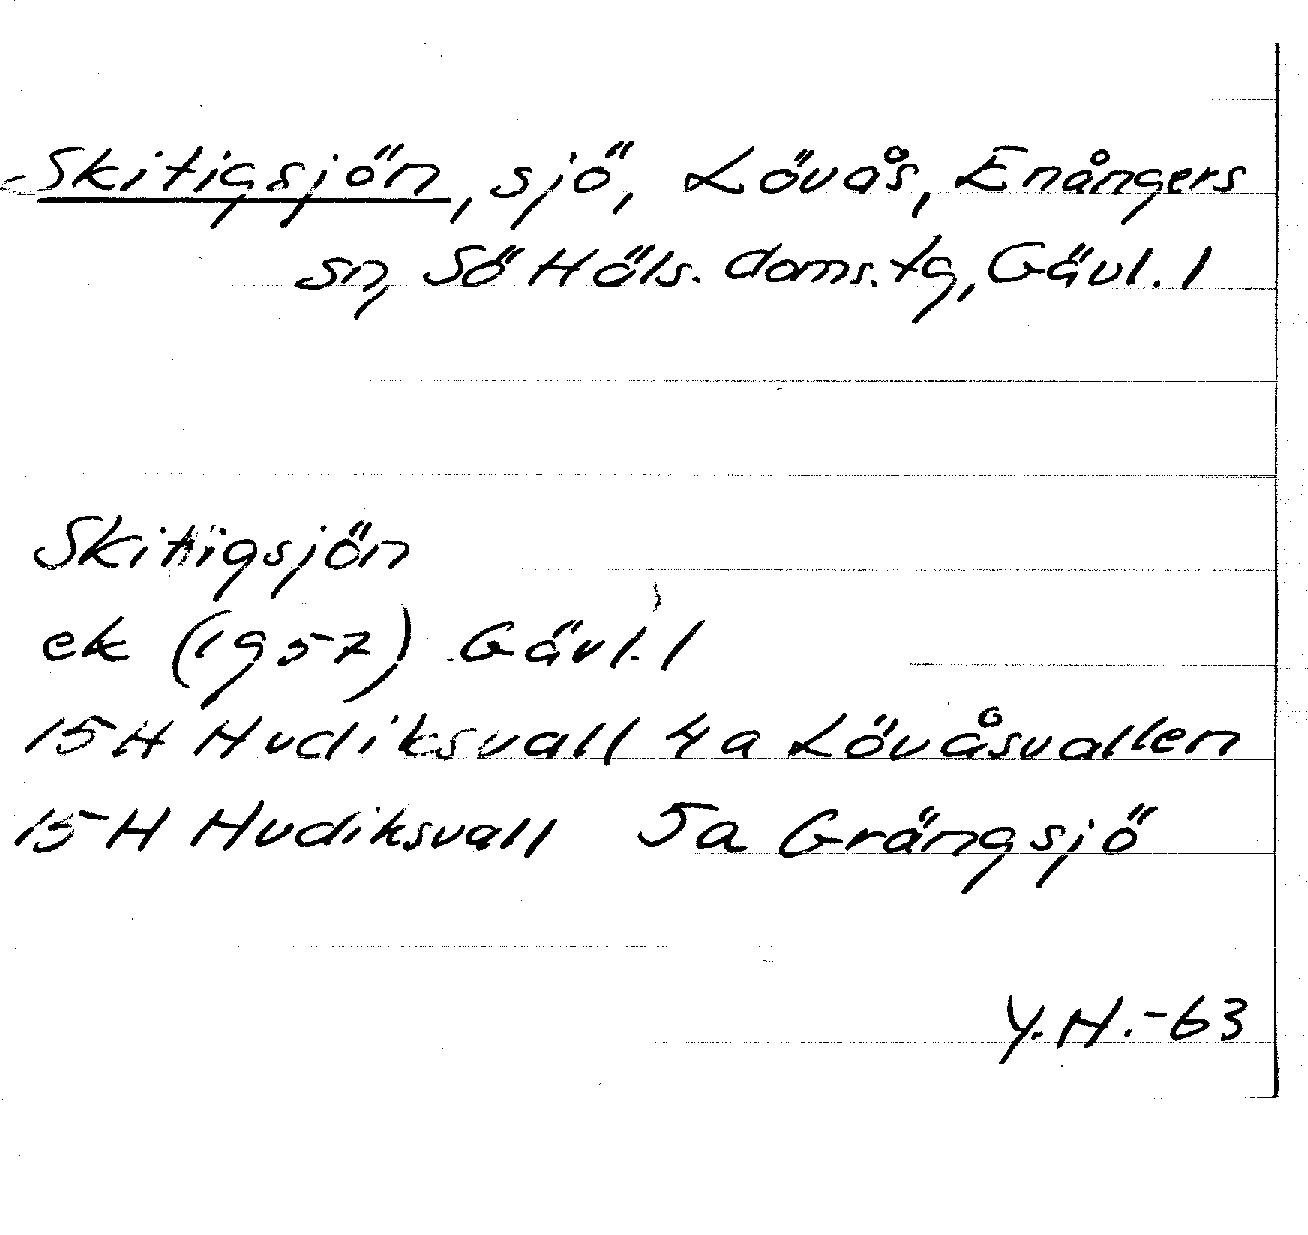 Skitigsjön, sjö, Lövås, Enångers
sn, Sö Häls. doms. tg, Gävl. l
Skitigsjön
ek (1957) Gävl. l
15H Hudiksvall 4a Lövåsvallen
15H Hudiksvall 5a Grängsjö
Y.H.-63